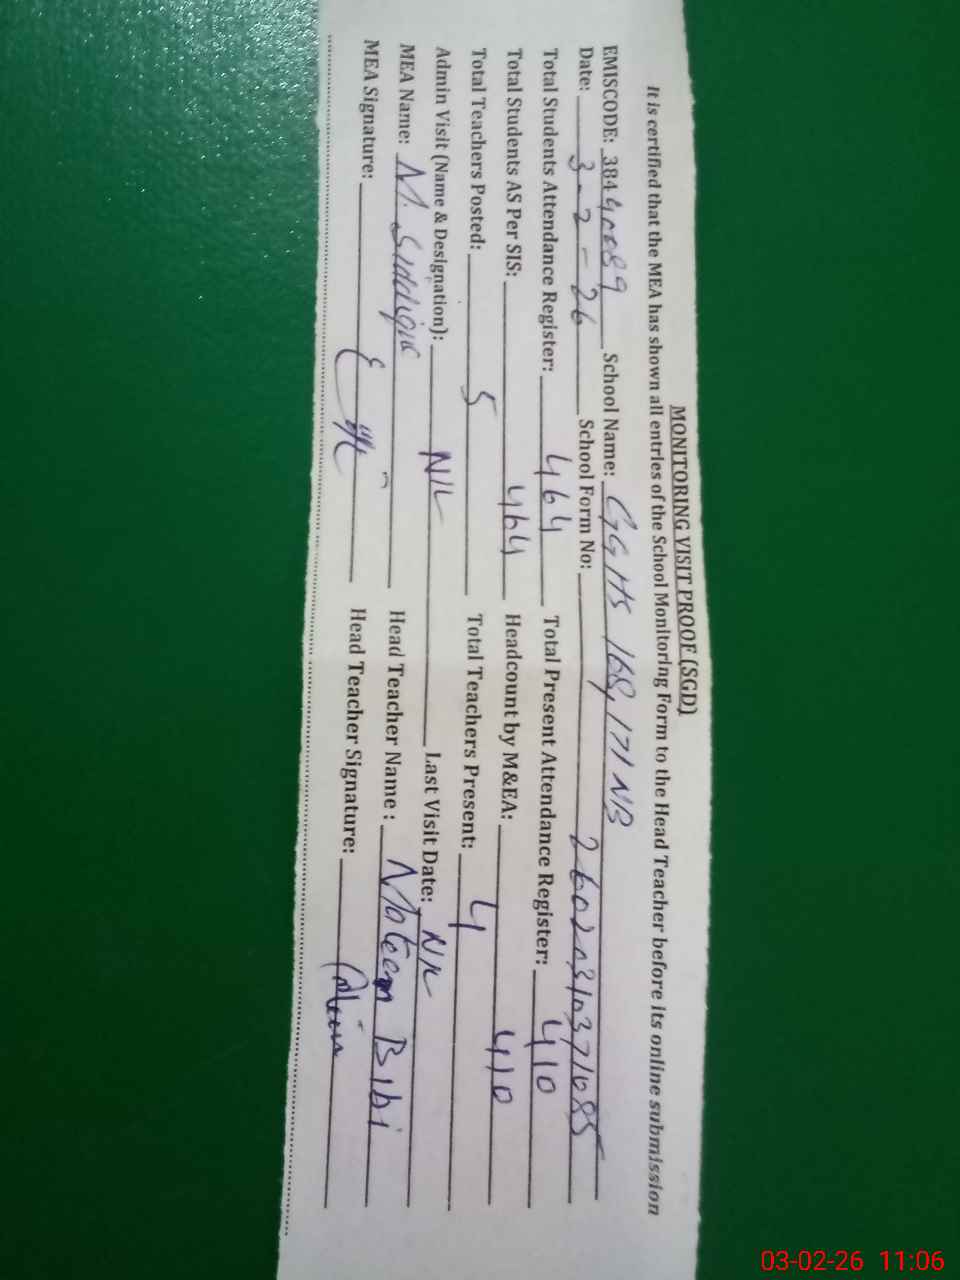 MONITORING VISIT PROOF (SGD)
It is certified that the MEA has shown all entries of the School Monitoring Form to the Head Teacher before its online submission
EMISCODE: 38440089 School Name: GGHS 168,171 NB
Date: 3-2-26 School Form No: 26020310371085
Total Students Attendance Register: 464 Total Present Attendance Register: 410
Total Students AS Per SIS: 464 Headcount by M&EA: 410
Total Teachers Posted: 5 Total Teachers Present: 4
Admin Visit (Name & Designation): NIL Last Visit Date: NIL
MEA Name: M. Siddique Head Teacher Name : Bibi
MEA Signature: Head Teacher Signature:
03-02-26 11:06